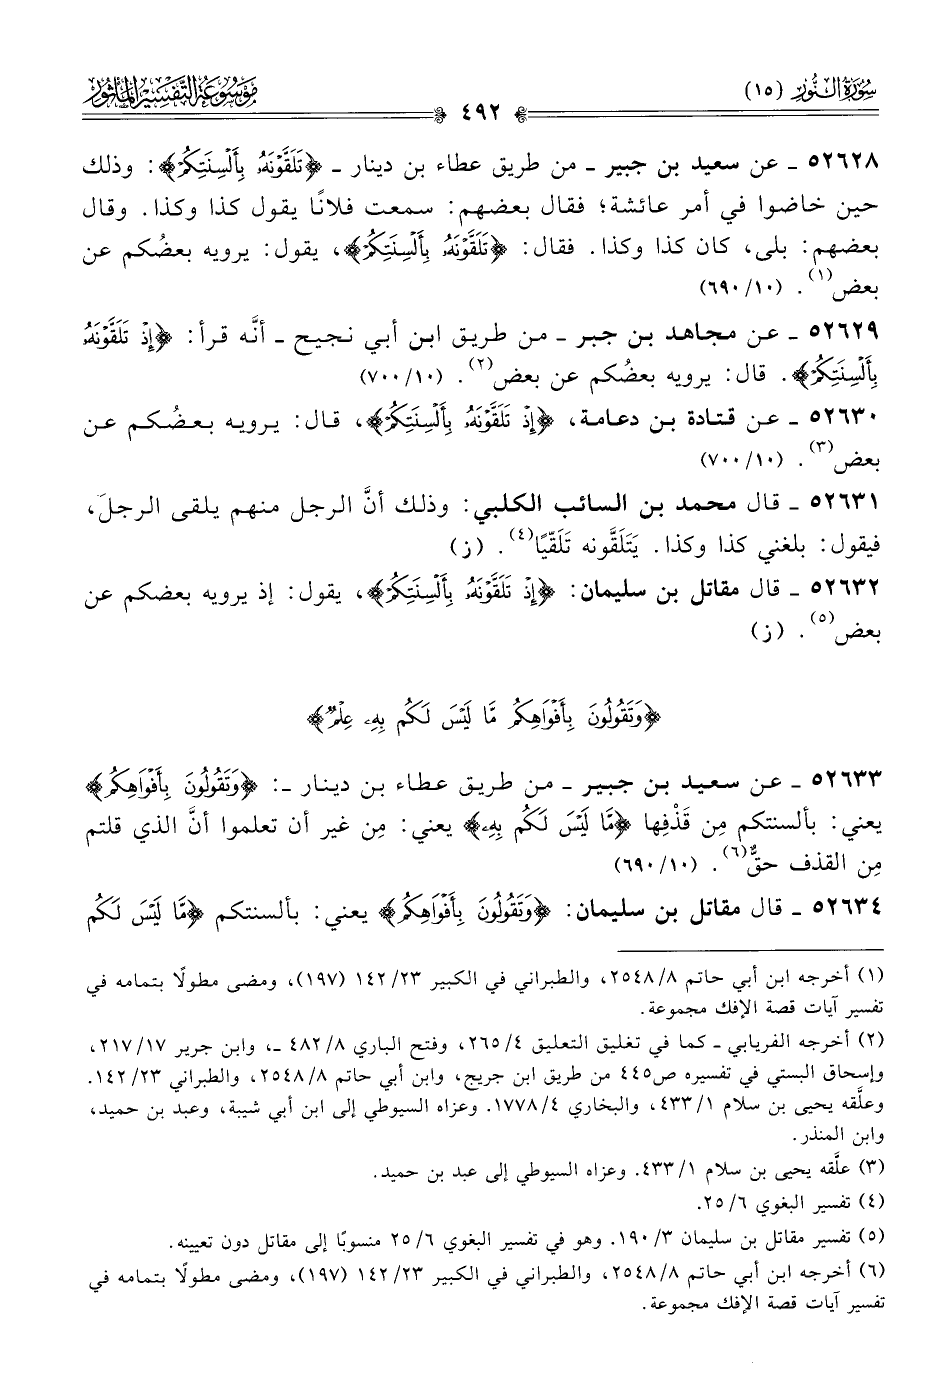 سُورَةُ النُّورِ (١٥)
٤٩٢
مَوْسُوعَةُ التَّفْسِيرِ المَأْثُورِ
٥٢٦٢٨ ـ عن سعيد بن جبير ـ من طريق عطاء بن دينار ـ ﴿تَلَقَّوْنَهُۥ بِأَلْسِنَتِكُمْ﴾: وذلك
حين خاضوا في أمر عائشة؛ فقال بعضهم: سمعت فلانًا يقول كذا وكذا. وقال
بعضهم: بلى، كان كذا وكذا. فقال: ﴿تَلَقَّوْنَهُۥ بِأَلْسِنَتِكُمْ﴾، يقول: يرويه بعضُكم عن
بعض(١). (١٠/ ٦٩٠)
٥٢٦٢٩ ـ عن مجاهد بن جبر ـ من طريق ابن أبي نجيح ـ أنَّه قرأ: ﴿إِذْ تَلَقَّوْنَهُۥ
بِأَلْسِنَتِكُمْ﴾. قال: يرويه بعضُكم عن بعض(٢). (١٠/ ٧٠٠)
٥٢٦٣٠ ـ عن قتادة بن دعامة، ﴿إِذْ تَلَقَّوْنَهُۥ بِأَلْسِنَتِكُمْ﴾، قال: يرويه بعضُكم عن
بعض(٣). (١٠/ ٧٠٠)
٥٢٦٣١ ـ قال محمد بن السائب الكلبي: وذلك أنَّ الرجل منهم يلقى الرجلَ،
فيقول: بلغني كذا وكذا. يَتَلَقَّونه تَلَقّيًا(٤). (ز)
٥٢٦٣٢ ـ قال مقاتل بن سليمان: ﴿إِذْ تَلَقَّوْنَهُۥ بِأَلْسِنَتِكُمْ﴾، يقول: إذ يرويه بعضكم عن
بعض(٥). (ز)
﴿وَتَقُولُونَ بِأَفْوَاهِكُم مَّا لَيْسَ لَكُم بِهِۦ عِلْمٌ﴾
٥٢٦٣٣ ـ عن سعيد بن جبير ـ من طريق عطاء بن دينار ـ: ﴿وَتَقُولُونَ بِأَفْوَاهِكُم﴾
يعني: بألسنتكم مِن قَذْفِها ﴿مَّا لَيْسَ لَكُم بِهِۦ﴾ يعني: مِن غير أن تعلموا أنَّ الذي قلتم
مِن القذف حقٌّ(٦). (١٠/ ٦٩٠)
٥٢٦٣٤ ـ قال مقاتل بن سليمان: ﴿وَتَقُولُونَ بِأَفْوَاهِكُم﴾ يعني: بألسنتكم ﴿مَّا لَيْسَ لَكُم
(١) أخرجه ابن أبي حاتم ٨/ ٢٥٤٨، والطبراني في الكبير ٢٣/ ١٤٢ (١٩٧)، ومضى مطولًا بتمامه في
تفسير آيات قصة الإفك مجموعة.
(٢) أخرجه الفريابي ـ كما في تغليق التعليق ٤/ ٢٦٥، وفتح الباري ٨/ ٤٨٢ ـ، وابن جرير ١٧/ ٢١٧،
وإسحاق البستي في تفسيره ص٤٤٥ من طريق ابن جريج، وابن أبي حاتم ٨/ ٢٥٤٨، والطبراني ٢٣/ ١٤٢.
وعلَّقه يحيى بن سلام ١/ ٤٣٣، والبخاري ٤/ ١٧٧٨. وعزاه السيوطي إلى ابن أبي شيبة، وعبد بن حميد،
وابن المنذر.
(٣) علَّقه يحيى بن سلام ١/ ٤٣٣. وعزاه السيوطي إلى عبد بن حميد.
(٤) تفسير البغوي ٦/ ٢٥.
(٥) تفسير مقاتل بن سليمان ٣/ ١٩٠. وهو في تفسير البغوي ٦/ ٢٥ منسوبًا إلى مقاتل دون تعيينه.
(٦) أخرجه ابن أبي حاتم ٨/ ٢٥٤٨، والطبراني في الكبير ٢٣/ ١٤٢ (١٩٧)، ومضى مطولًا بتمامه في
تفسير آيات قصة الإفك مجموعة.